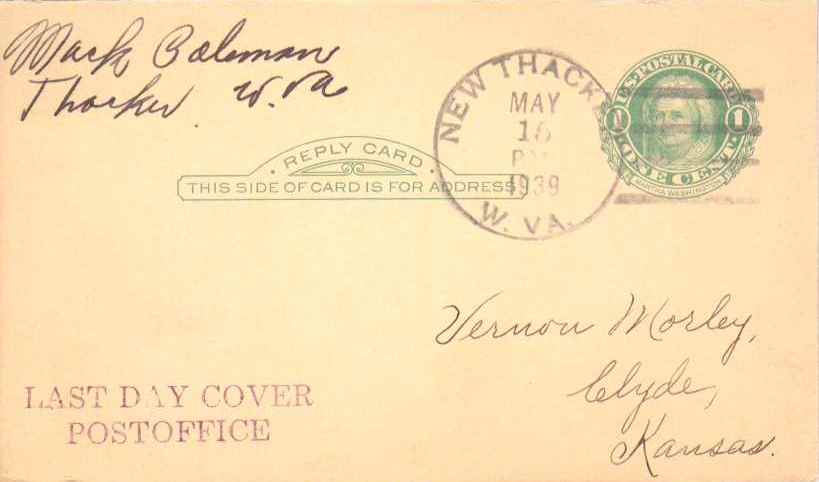 Mack Coleman
Thacker W. Va
NEW THACK
MAY
16
1939
W. VA.
U.S. POSTAL CARD
1 1
ONE CENT
MARTHA WASHINGTON
REPLY CARD
THIS SIDE OF CARD IS FOR ADDRESS
Vernon Morley,
Clyde,
Kansas.
LAST DAY COVER
POSTOFFICE